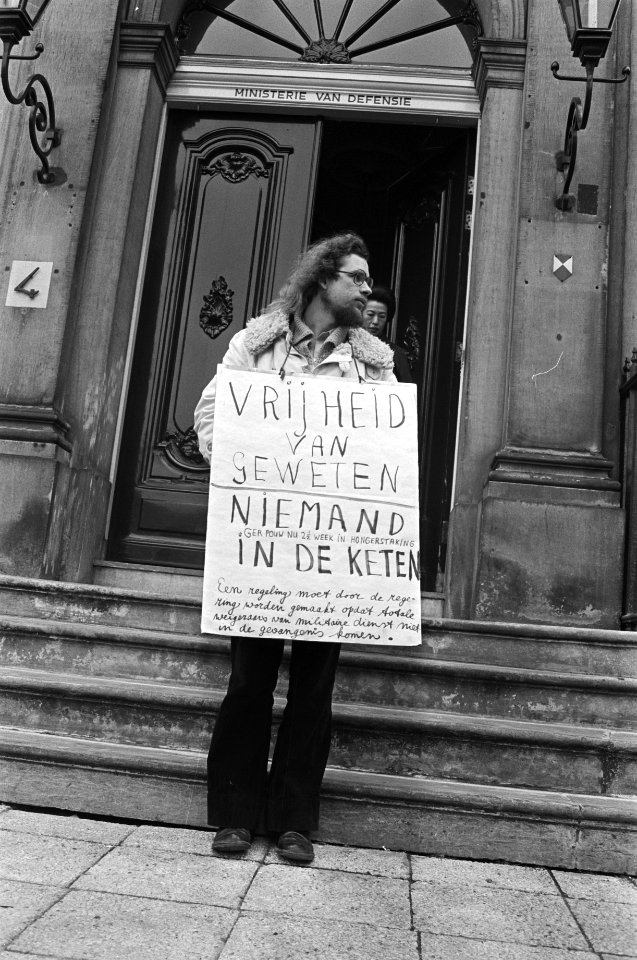 MINISTERIE VAN DEFENSIE
4
VRIJHEID
VAN
GEWETEN
NIEMAND
GER POUW NU 2½ WEEK IN HONGERSTAKING
IN DE KETEN
Een regeling moet door de rege-
ring worden gemaakt opdat totale
weigeraars van militaire dienst niet
in de gevangenis komen.